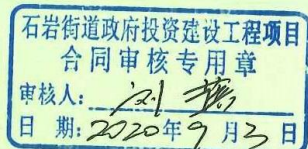 石岩街道政府投资建设工程项目
合同审核专用章
审核人：刘
日 期：2020年9月3日